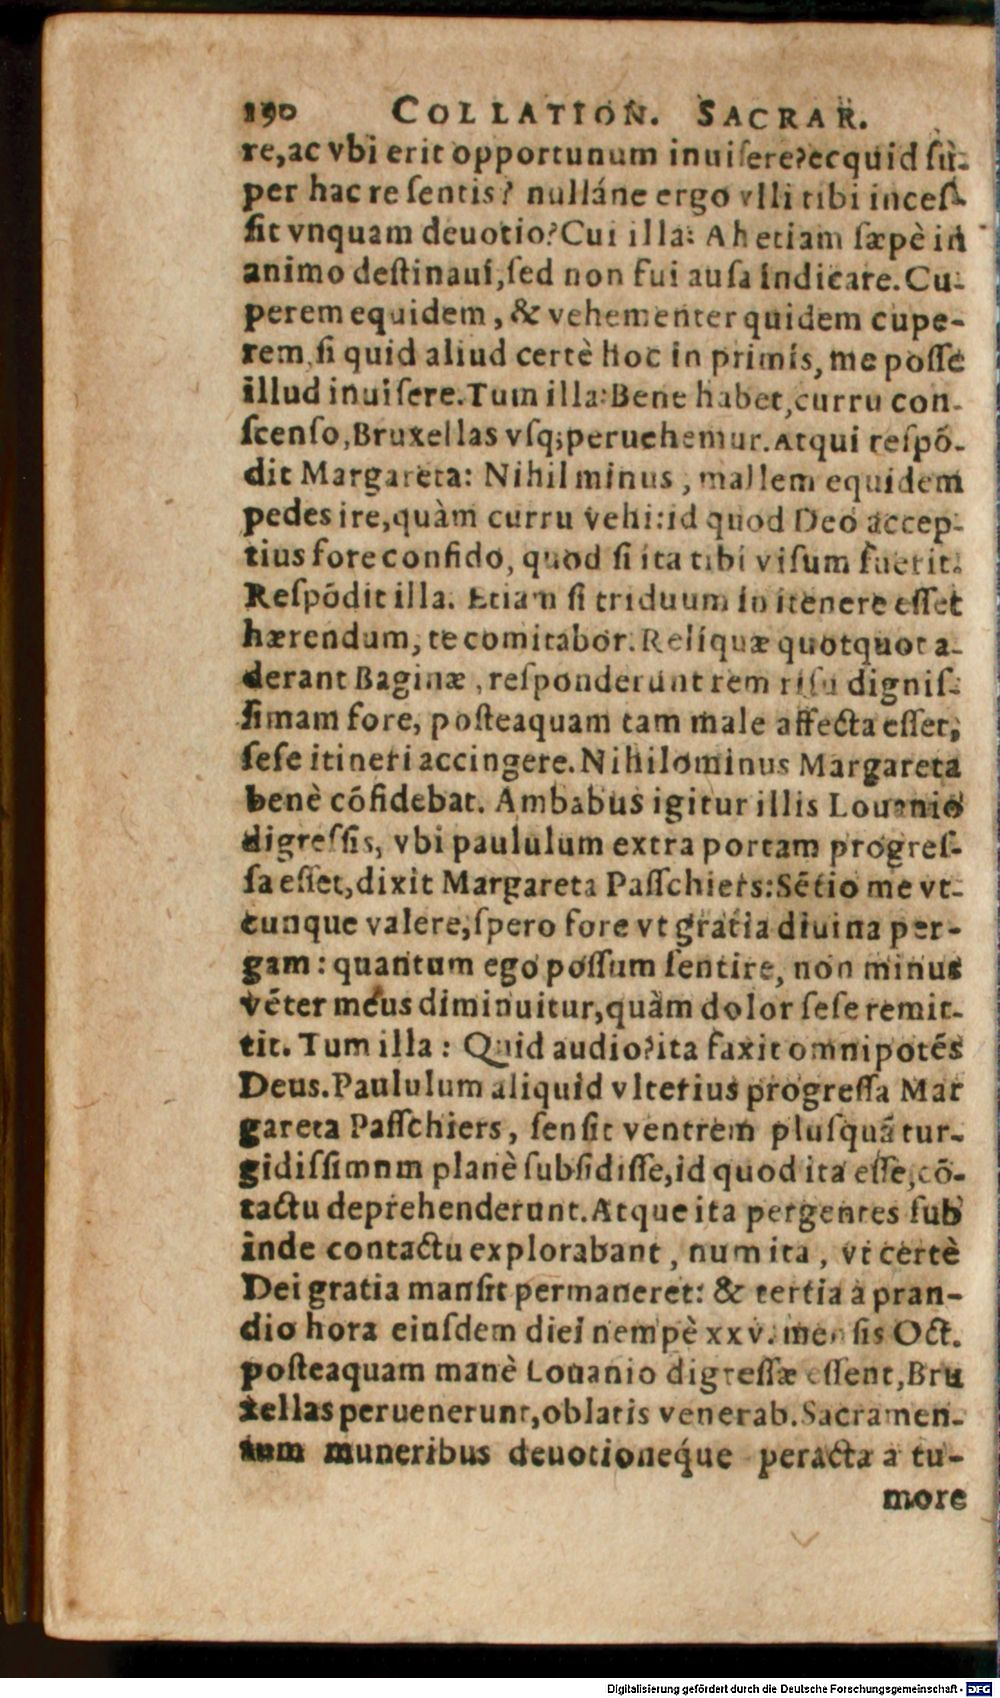 190 COLLATION. SACRAR.
re,ac vbi erit opportunum inuiſere?ecquid ſu-
per hac re ſentis? nulláne ergo vlli tibi inceſ-
ſit vnquam deuotio?Cui illa: Ah etiam ſæpè in
animo deſtinaui,ſed non fui auſa indicare.Cu-
perem equidem, & vehementer quidem cupe-
rem, ſi quid aliud certè hoc in primis, me poſſe
illud inuiſere.Tum illa:Bene habet,curru con-
ſcenſo,Bruxellas vſq;peruehemur.Atqui reſpõ-
dit Margareta: Nihil minus, mallem equidem
pedes ire,quàm curru vehi:id quod Deo accep-
tius fore confido, quod ſi ita tibi viſum fuerit.
Reſpõdit illa. Etiam ſi triduum in itenere eſſet
hærendum, te comitabor. Reliquæ quotquot a-
derant Baginæ, reſponderunt rem riſu digniſ-
ſimam fore, poſteaquam tam male affecta eſſet,
ſeſe itineri accingere.Nihilominus Margareta
benè cõfidebat. Ambabus igitur illis Louanio
digreſſis, vbi paululum extra portam progreſ-
ſa eſſet,dixit Margareta Paſſchiers:Sẽtio me vt-
cunque valere,ſpero fore vt gratia diuina per-
gam: quantum ego poſſum ſentire, non minus
vẽter meus diminuitur,quàm dolor ſeſe remit-
tit. Tum illa: Quid audio?ita faxit omnipotẽs
Deus.Paululum aliquid vlterius progreſſa Mar
gareta Paſſchiers, ſenſit ventrem pluſquã tur-
gidiſſimnm planè ſubſidiſſe,id quod ita eſſe,cõ-
tactu deprehenderunt.Atque ita pergentes ſub
inde contactu explorabant, num ita, vt certè
Dei gratia manſit permaneret: & tertia à pran-
dio hora eiuſdem diei nempè xxv. menſis Oct.
poſteaquam manè Louanio digreſſæ eſſent,Bru
xellas peruenerunt,oblatis venerab.Sacramen-
tum muneribus deuotioneq́ue peracta a tu-
more
Digitalisierung gefördert durch die Deutsche Forschungsgemeinschaft - DFG